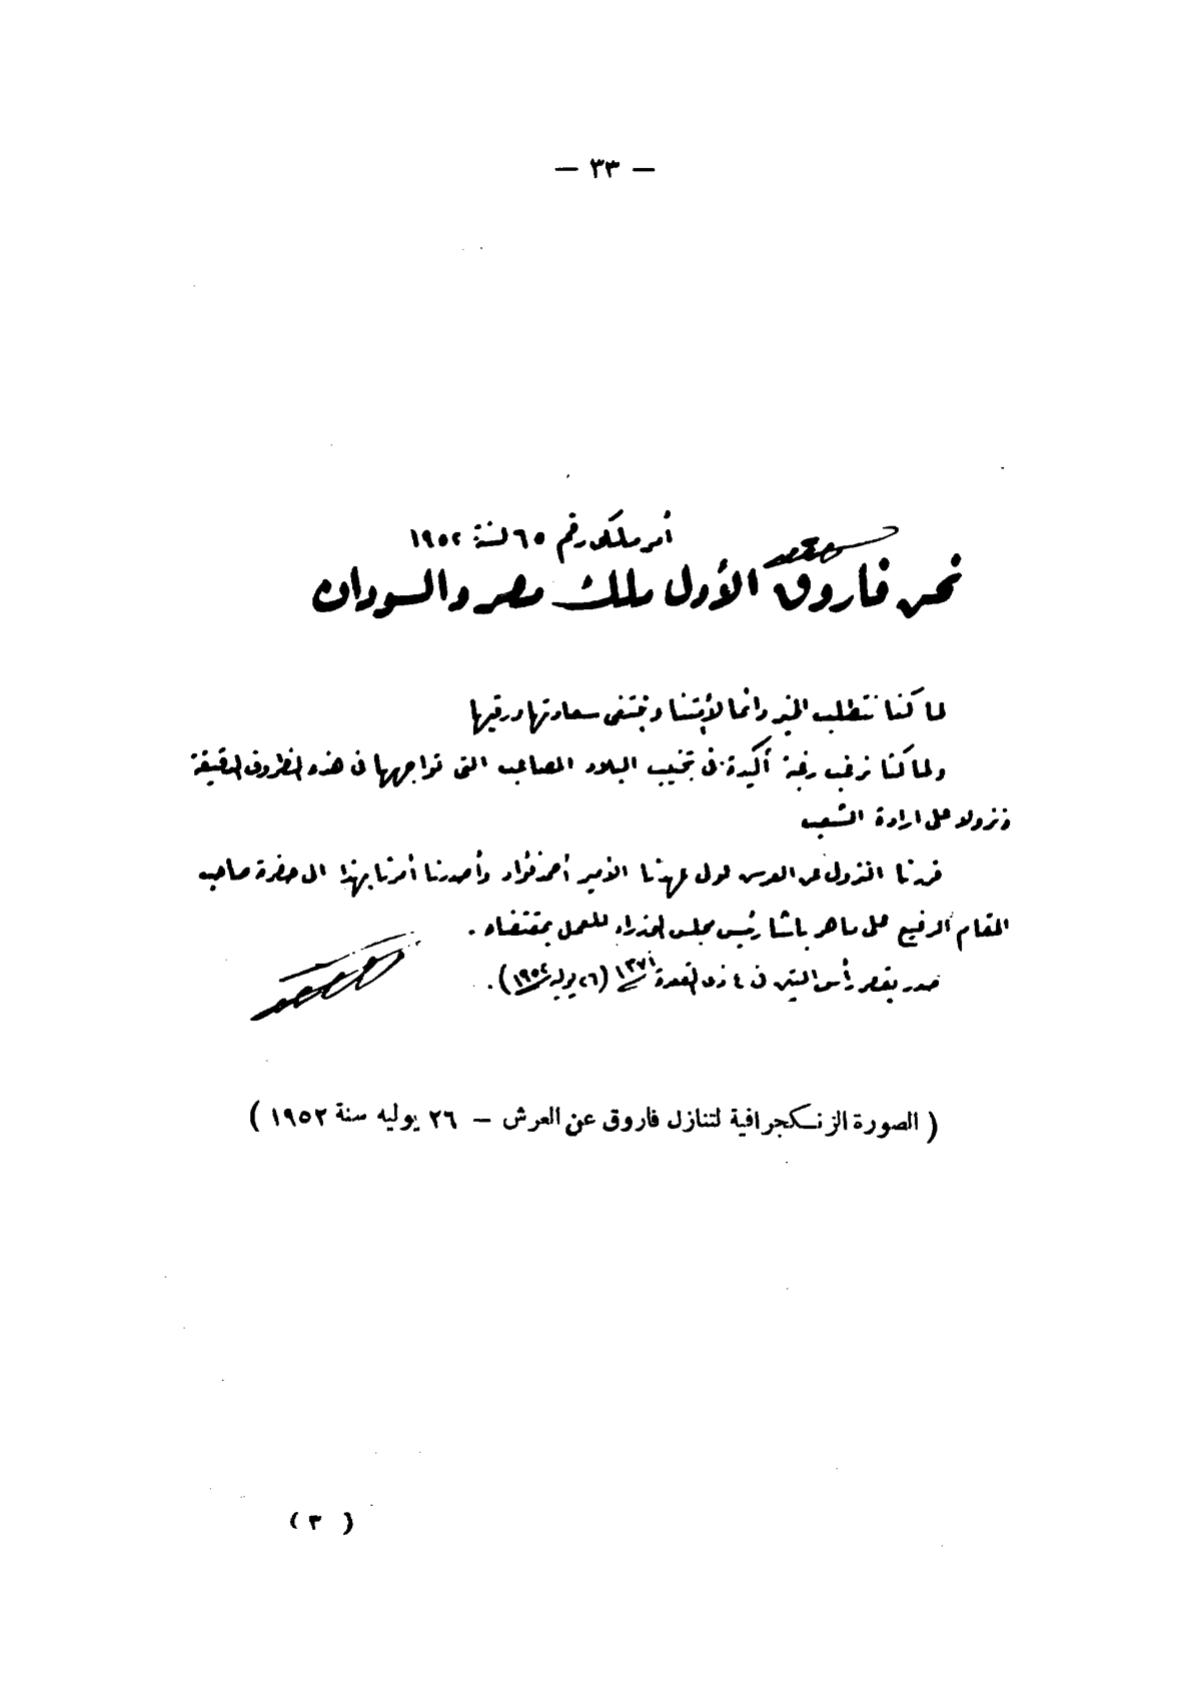 — ٣٣ —
أمر ملكى رقم ٦٥ لسنة ١٩٥٢
نحن فاروق الأول ملك مصر والسودان
لما كنا نتطلب الخير دائما لأمتنا ونبتغى سعادتها ورقيها
ولما كنا نرغب رغبة أكيدة فى تجنيب البلاد المصاعب التى تواجهها فى هذه الظروف الدقيقة
ونزولا على ارادة الشعب
قررنا النزول عن العرش لولى عهدنا الأمير أحمد فؤاد وأصدرنا أمرنا بهذا الى حضرة صاحب
المقام الرفيع على ماهر باشا رئيس مجلس الوزراء للعمل بمقتضاه .
صدر بقصر رأس التين فى ٤ ذى القعدة ١٣٧١ (٢٦ يوليه ١٩٥٢) .
( الصورة الزنكجرافية لتنازل فاروق عن العرش – ٢٦ يوليه سنة ١٩٥٢ )
( ٣ )